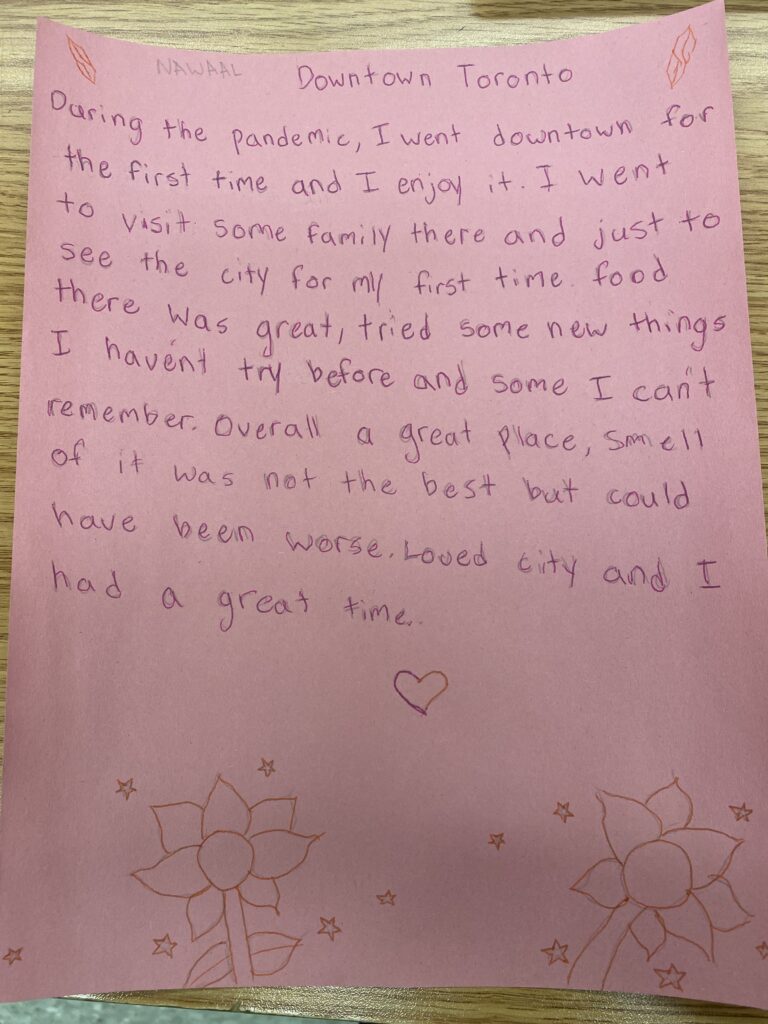 NAWAAL Downtown Toronto
During the pandemic, I went downtown for
the first time and I enjoy it. I went
to visit some family there and just to
see the city for my first time. food
there was great, tried some new things
I haven't try before and some I can't
remember. Overall a great place, smell
of it was not the best but could
have been worse. Loved city and I
had a great time.